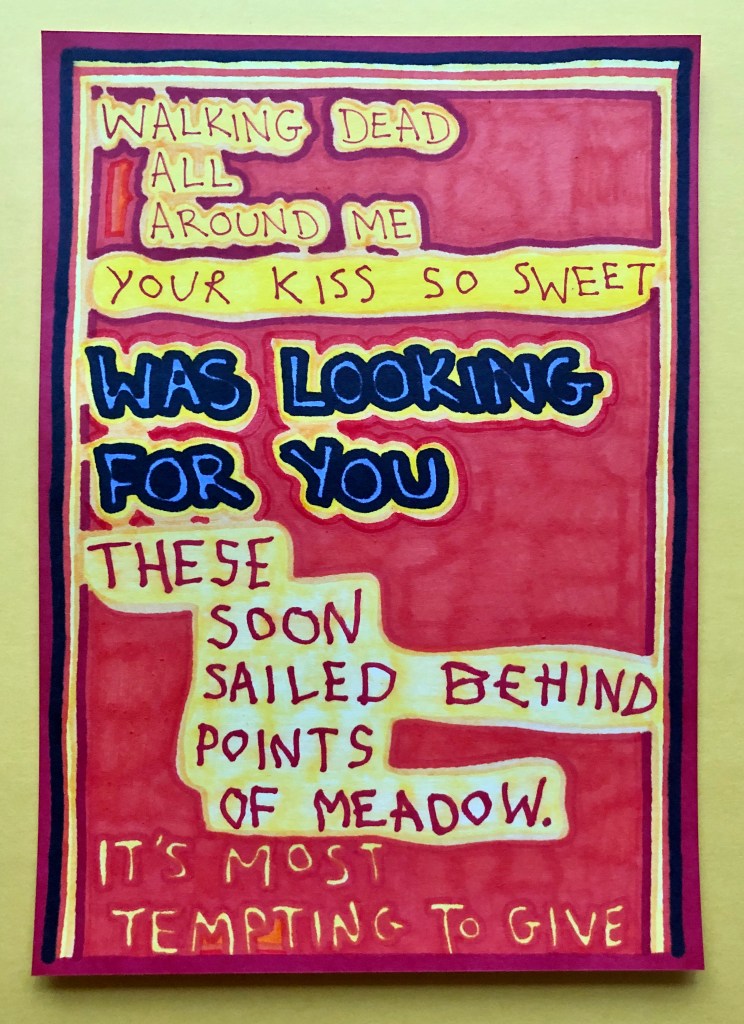 WALKING DEAD
ALL
AROUND ME
YOUR KISS SO SWEET
WAS LOOKING
FOR YOU
THESE
SOON
SAILED BEHIND
POINTS
OF MEADOW.
IT'S MOST
TEMPTING TO GIVE